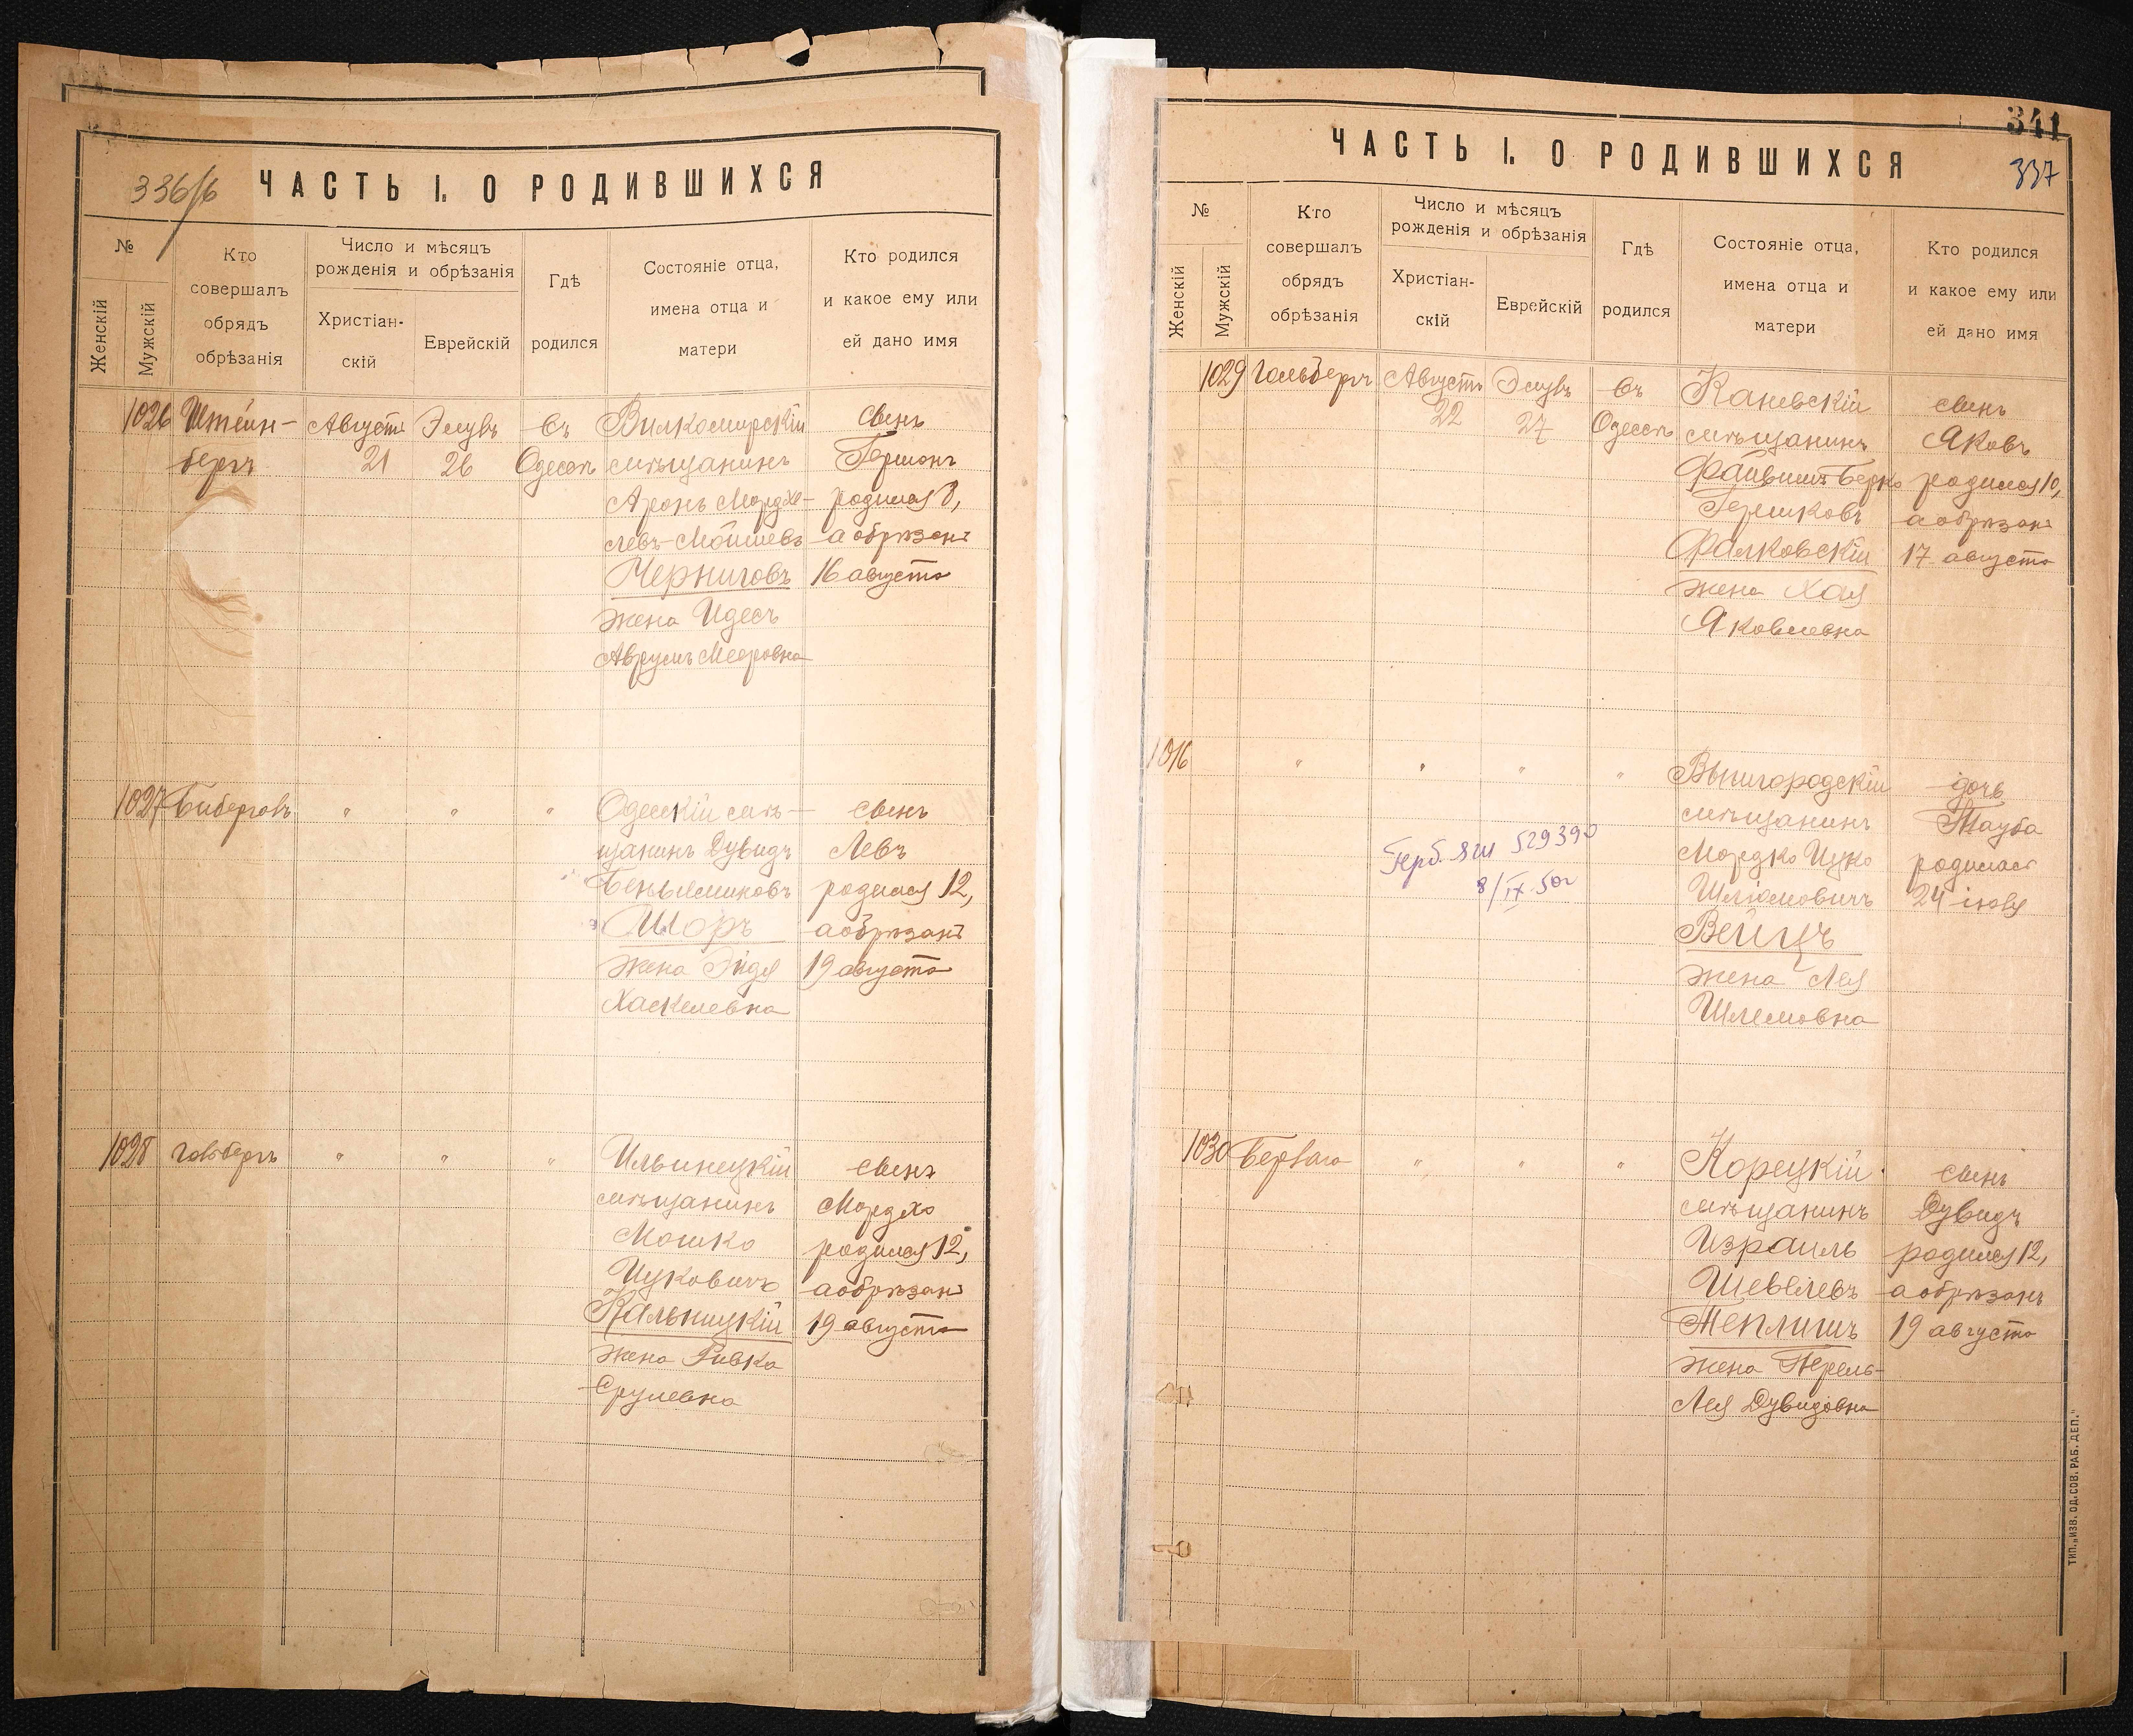 336/б
ЧАСТЬ I. О РОДИВШИХСЯ
№
Женскій
Мужскій
Кто
совершалъ
обрядъ
обрѣзанія
Число и мѣсяцъ
рожденія и обрѣзанія
Христіан-
скій
Еврейскій
Гдѣ
родился
Состояніе отца,
имена отца и
матери
Кто родился
и какое ему или
ей дано имя
1026 Штейн- Августъ Элулъ въ Вилкомирскій сынъ
бергъ 21 26 Одессѣ мѣщанинъ Гершонъ
Аронъ Мордхе- родился 8,
левъ-Мойшевъ а обрѣзанъ
Черниговъ 16 августа
жена Идесъ
Аврумъ Мееровна
1027 Биберговъ " " " Одесскій мѣ- сынъ
щанинъ Дувидъ Левъ
Беньяминовъ родился 12,
Шоръ а обрѣзанъ
жена Гидя 19 августа
Хаскелевна
1028 Гольбергъ " " " Ильинецкій сынъ
мѣщанинъ Мордхо
Мошко родился 12,
Ицковичъ а обрѣзанъ
Кальницкій 19 августа
жена Ривка
Срулевна
341
337
ЧАСТЬ I. О РОДИВШИХСЯ
№
Женскій
Мужскій
Кто
совершалъ
обрядъ
обрѣзанія
Число и мѣсяцъ
рожденія и обрѣзанія
Христіан-
скій
Еврейскій
Гдѣ
родился
Состояніе отца,
имена отца и
матери
Кто родился
и какое ему или
ей дано имя
1029 Гольбергъ Августъ Элулъ въ Каневскій сынъ
22 27 Одессѣ мѣщанинъ Яковъ
Файвишъ-Берко родился 10,
Гершковъ а обрѣзанъ
Фалковскій 17 августа
жена Хая
Яковлевна
1016 " " " " Вышгородскій дочь
мѣщанинъ Тауба
Мордко Ицко родилась
Шліомовичъ 24 іюля
Вейцъ
жена Лея
Шлемовна
529390
8/IX 50г
1030 " " " Корецкій сынъ
мѣщанинъ Дувидъ
Израиль родился 12,
Шевелевъ а обрѣзанъ
Теплишъ 19 августа
жена Перель-
Лея Дувидовна
ТИП. „ИЗВ. ОД. СОВ. РАБ. ДЕП."